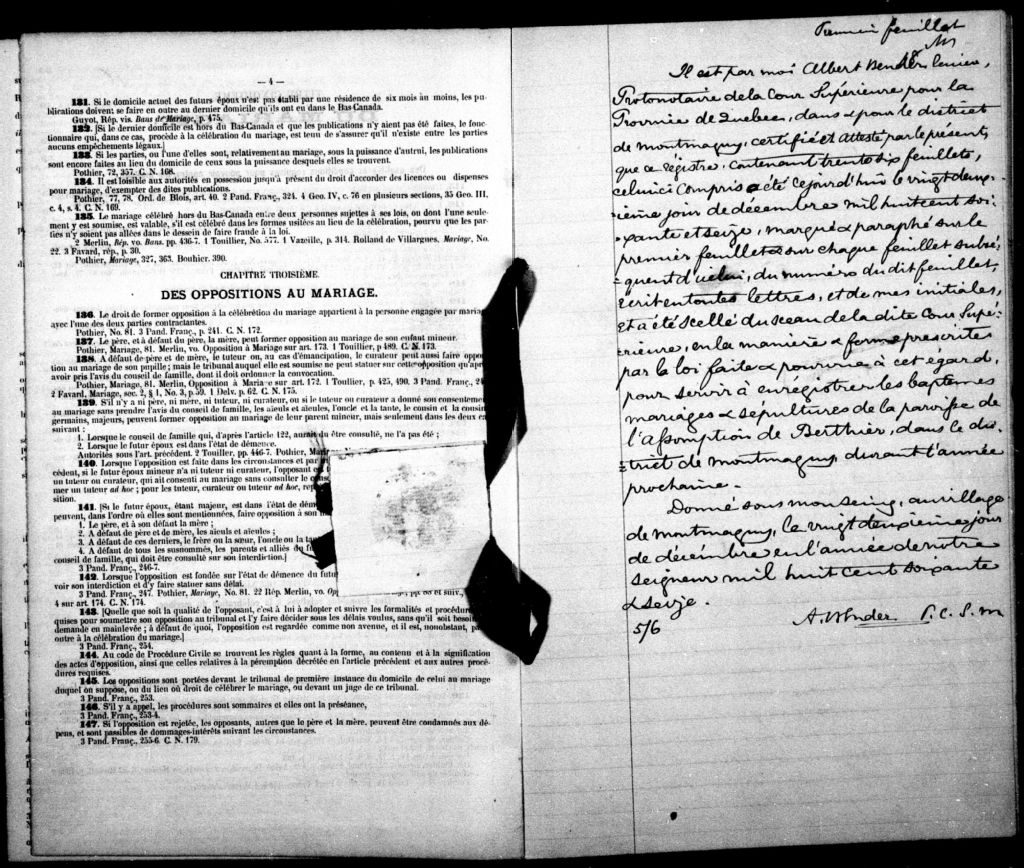 — 4 —
131. Si le domicile actuel des futurs époux n'est pas établi par une résidence de six mois au moins, les pu-
blications doivent se faire en outre au dernier domicile qu'ils ont eu dans le Bas-Canada.
Guyot, Rép. vis. Bans de Mariage, p. 475.
132. [Si le dernier domicile est hors du Bas-Canada et que les publications n'y aient pas été faites, le fonc-
tionnaire qui, dans ce cas, procède à la célébration du mariage, est tenu de s'assurer qu'il n'existe entre les parties
aucuns empêchements légaux.]
133. Si les parties, ou l'une d'elles sont, relativement au mariage, sous la puissance d'autrui, les publications
sont encore faites au lieu du domicile de ceux sous la puissance desquels elles se trouvent.
Pothier, 72, 357. C. N. 168.
134. Il est loisible aux autorités en possession jusqu'à présent du droit d'accorder des licences ou dispenses
pour mariage, d'exempter des dites publications.
Pothier, 77, 78. Ord. de Blois, art. 40. 2 Pand. Franç., 324. 4 Geo. IV, c. 76 en plusieurs sections, 35 Geo. III,
c. 4, s. 4. C. N. 169.
135. Le mariage célébré hors du Bas-Canada entre deux personnes sujettes à ses lois, ou dont l'une seule-
ment y est soumise, est valable, s'il est célébré dans les formes usitées au lieu de la célébration, pourvu que les par-
ties n'y soient pas allées dans le dessein de faire fraude à la loi.
2 Merlin, Rép. vo. Bans. pp. 436-7. 1 Touillier, No. 577. 1 Vazeille, p. 314. Rolland de Villargues. Mariage, No.
22. 3 Favard, rép., p. 30.
Pothier, Mariage, 327, 363. Bouhier. 390.
CHAPITRE TROISIÈME.
DES OPPOSITIONS AU MARIAGE.
136. Le droit de former opposition à la célébration du mariage appartient à la personne engagée par mariage
avec l'une des deux parties contractantes.
Pothier, No. 81. 3 Pand. Franç., p. 241. C. N. 172.
137. Le père, et à défaut du père, la mère, peut former opposition au mariage de son enfant mineur.
Pothier, Mariage, 81. Merlin, vo. Opposition à Mariage sur art. 173. 1 Touillier, p. 489. C. N. 173.
138. A défaut de père et de mère, le tuteur ou, au cas d'émancipation, le curateur peut aussi faire oppo
tion au mariage de son pupille; mais le tribunal auquel elle est soumise ne peut statuer sur cette opposition qu'apr
avoir pris l'avis du conseil de famille, dont il doit ordonner la convocation.
Pothier, Mariage, 81. Merlin, Opposition à Mariage sur art. 172. 1 Toullier, p. 425, 490. 3 Pand. Franç., 24
2 Favard, Mariage, sec. 2, § 1, No. 3, p. 59. 1 Delv. p. 62. C. N. 175.
139. S'il n'y a ni père, ni mère, ni tuteur, ni curateur, ou si le tuteur ou curateur a donné son consenteme
au mariage sans prendre l'avis du conseil de famille, les aïeuls et aïeules, l'oncle et la tante, le cousin et la cousin
germains, majeurs, peuvent former opposition au mariage de leur parent mineur, mais seulement dans les deux ca
suivant :
1. Lorsque le conseil de famille qui, d'après l'article 122, aurait du être consulté, ne l'a pas été ;
2. Lorsque le futur époux est dans l'état de démence.
Autorités sous l'art. précédent. 2 Touiller, pp. 446-7. Pothier, Mar
140. Lorsque l'opposition est faite dans les circonstances et par
cédent, si le futur époux mineur n'a ni tuteur ni curateur, l'opposant
et un tuteur ou curateur, qui ait consenti au mariage sans consulter le cons
mer un tuteur ad hoc ; pour les tuteur, curateur ou tuteur ad hoc, rep
sition.
141. [Si le futur époux, étant majeur, est dans l'état de déme
peuvent, dans l'ordre où elles sont mentionnées, faire opposition à son m
1. Le père, et à son défaut la mère ;
2. A défaut de père et de mère, les aïeuls et aïeules ;
3. A défaut de ces derniers, le frère ou la sœur, l'oncle ou la tan
4. A défaut de tous les susnommés, les parents et alliés du fu
conseil de famille, qui doit être consulté sur son interdiction.]
3 Pand., 246-7.
142. Lorsque l'opposition est fondée sur l'état de démence du futu
voir son interdiction et d'y faire statuer sans délai.
3 Pand., 247. Pothier, Mariage, No. 81. 22 Rép. Merlin, vo. Op pp. 68 et suiv.,
4 sur art. 174. C. N. 174.
143. [Quelle que soit la qualité de l'opposant, c'est à lui à adopter et suivre les formalités et procédur
quises pour soumettre son opposition au tribunal et l'y faire décider sous les délais voulus, sans qu'il soit besoin
demande en mainlevée ; à défaut de quoi, l'opposition est regardée comme non avenue, et il est, nonobstant, pa
outre à la célébration du mariage.]
3 Pand. Franç., 254.
144. Au code de Procédure Civile se trouvent les règles quant à la forme, au contenu et à la signification
des actes d'opposition, ainsi que celles relatives à la péremption décrétée en l'article précédent et aux autres procé-
dures requises.
145. Les oppositions sont portées devant le tribunal de première instance du domicile de celui au mariage
duquel on s'oppose, ou du lieu où droit de célébrer le mariage, ou devant un juge de ce tribunal.
3 Pand. Franç., 253.
146. S'il y a appel, les procédures sont sommaires et elles ont la préséance,
3 Pand. Franç., 253-4.
147. Si l'opposition est rejetée, les opposants, autres que le père et la mère, peuvent être condamnés aux dé-
pens, et sont passibles de dommages-intérêts suivant les circonstances.
3 Pand. Franç., 255-6. C. N. 179.
Premier feuillet
Il est par moi Albert Bender écuier,
Protonotaire de la Cour Supérieure pour la
Province de Quebec, dans & pour le district
de montmagny, certifié et attesté par le présent,
que ce régistre, contenant trente six feuillets,
celui ci compris a été ce jour d'hui le vingt deux-
ième jour de décembre mil huit cent soi-
xante et seize, marqué & paraphé sur le
premier feuillet & sur chaque feuillet subsé-
quent d'icelui, du numéro du dit feuillet,
écrit en toutes lettres, et de mes initiales,
et a été scellé du sceau de la dite Cour Supé-
rieure, en la manière & forme prescrites
par la loi faite & pourvue à cet égard,
pour servir à enrégistrer les baptemes
mariages & sépultures de la paroisse de
l'assomption de Berthier, dans le dis-
trict de montmagny durant l'année
prochaine.
Donné sous mon seing, au village
de montmagny, le vingt deuxième jour
de décembre en l'année de notre
Seigneur mil huit cent soixante
& seize.
5/6 A. Bender P. C. S. M